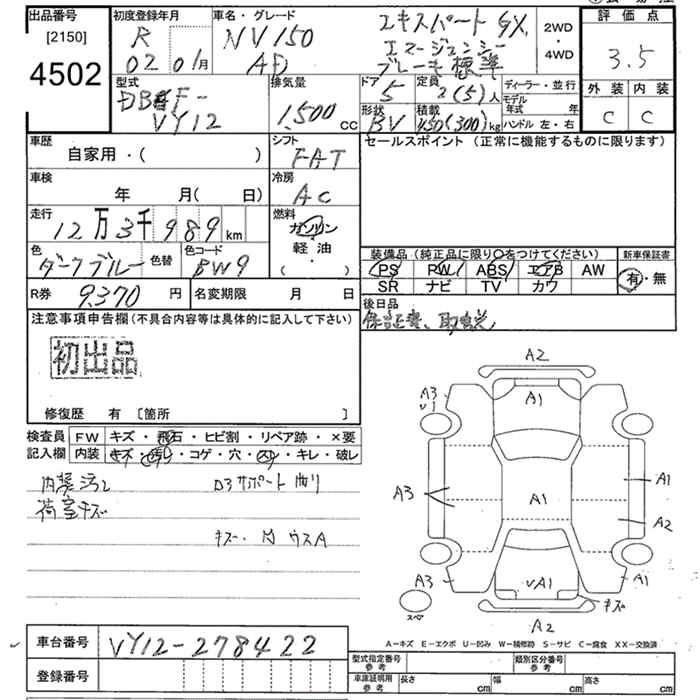 出品番号 初度登録年月 車名・グレード 評価点
[2150] R NV150 エキスパート GX 2WD
4502 02 01月 AD エマージェンシーブレーキ標準 4WD 3.5
型式 排気量 ドア 定員 ディーラー・並行 外装 内装
DBF-VY12 1,500cc 5 2(5)人 モデル年式 年 C C
形状 積載 ハンドル 左・右
BV 450(300)kg
車歴 シフト セールスポイント (正常に機能するものに限ります)
自家用・( ) FAT
車検 冷房
年 月( 日) AC
走行 燃料
12万3千989km ガソリン
軽・油
( )
色 色替 色コード 装備品 (純正品に限り○をつけてください) 新車保証書
ダークブルー BW9 PS PW ABS エアB AW 有・無
SR ナビ TV カワ
R券 9,370円 名変期限 月 日 後日品
保証書、取説
注意事項申告欄 (不具合内容等は具体的に記入して下さい)
初出品
修復歴 有 [箇所 ]
検査員 FW キズ・飛石・ヒビ割・リペア跡・×要
記入欄 内装 キズ・汚れ・コゲ・穴・スレ・キレ・破レ
内装汚レ
荷室キズ
キズ・凹 ウスA
A2
A3 A1
A3 A1 A1
A2
A3 VA1 A1
スペア キズ
A2
A-キズ E-エクボ U-凹み W-補修跡 S-サビ C-腐食 XX-交換済
車台番号 VY12-278422
登録番号
型式指定番号 参考 類別区分番号 参考
車庫証明用 参考 長さ cm 幅 cm 高さ cm